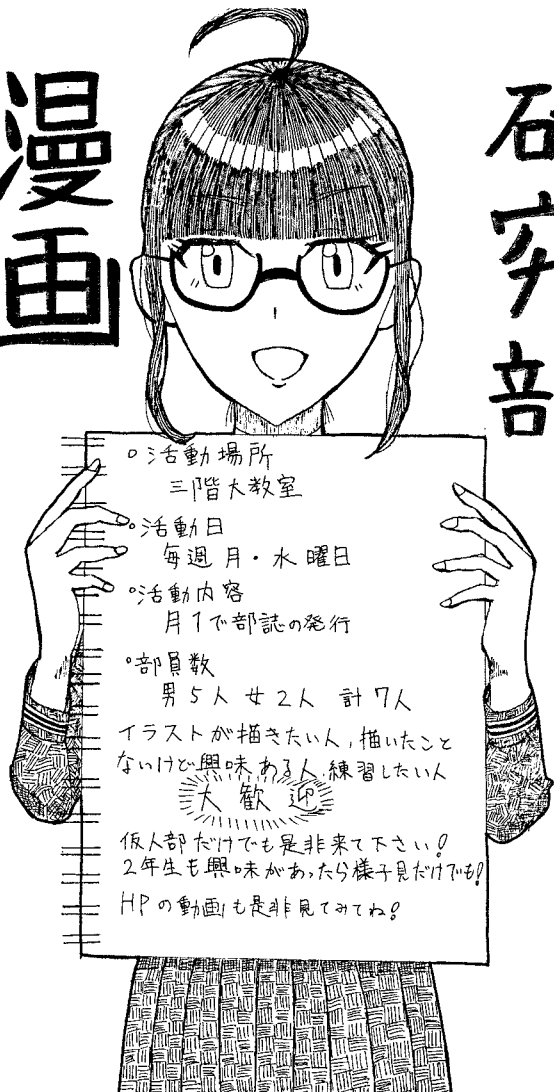 漫画
研究部
○活動場所
三階大教室
○活動日
毎週月・水曜日
○活動内容
月1で部誌の発行
○部員数
男5人 女2人 計7人
イラストが描きたい人，描いたこと
ないけど興味ある人，練習したい人
大歓迎
仮人部だけでも是非来て下さい！
2年生も興味があったら様子見だけでも！
HPの動画も是非見てみてね！